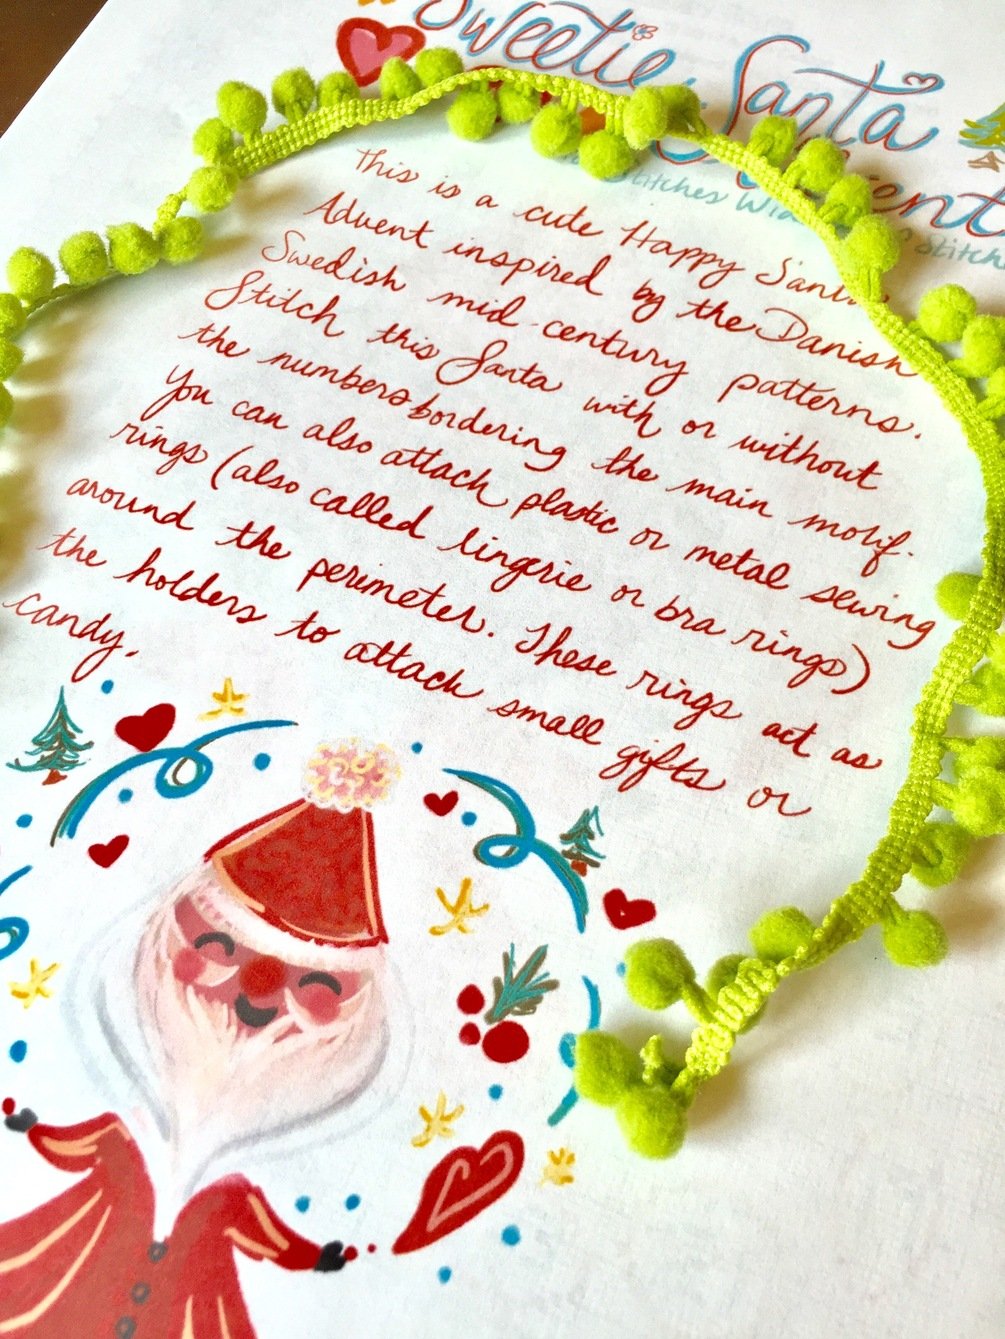 Sweetie Santa
Stitches
Stitch
This is a cute Happy Santa
Advent inspired by the Danish
Swedish mid century patterns.
Stitch this Santa with or without
the numbers bordering the main motif.
You can also attach plastic or metal sewing
rings (also called lingerie or bra rings)
around the perimeter. These rings act as
the holders to attach small gifts or
candy.